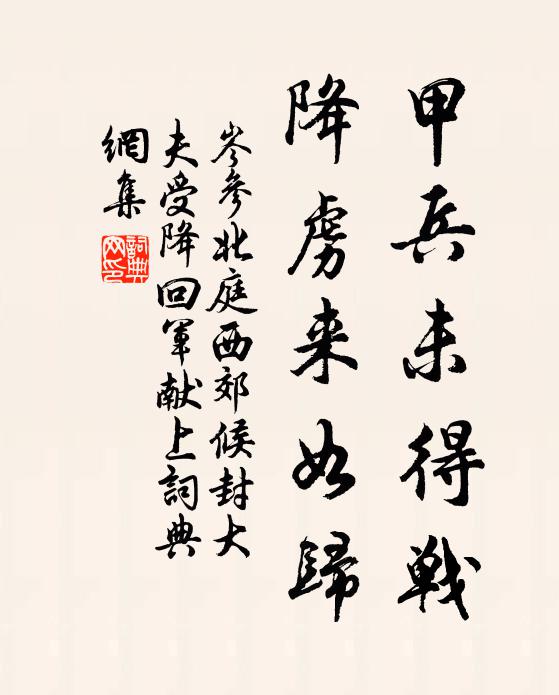 甲兵未得戦
降虜来如歸
岑參北庭西郊候封大
夫受降回軍献上詞典
網集
詞典
网印